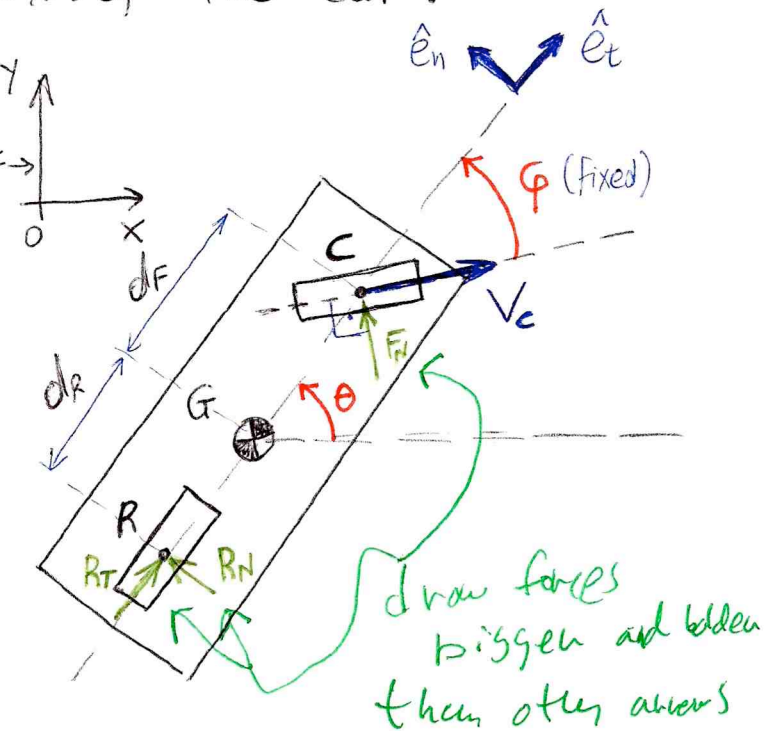 ê_n ê_t
Y
φ (fixed)
O X
C
d_F
V_c
F_N
d_R
G θ
R
R_T R_N
draw forces
bigger and bolder
than other arrows